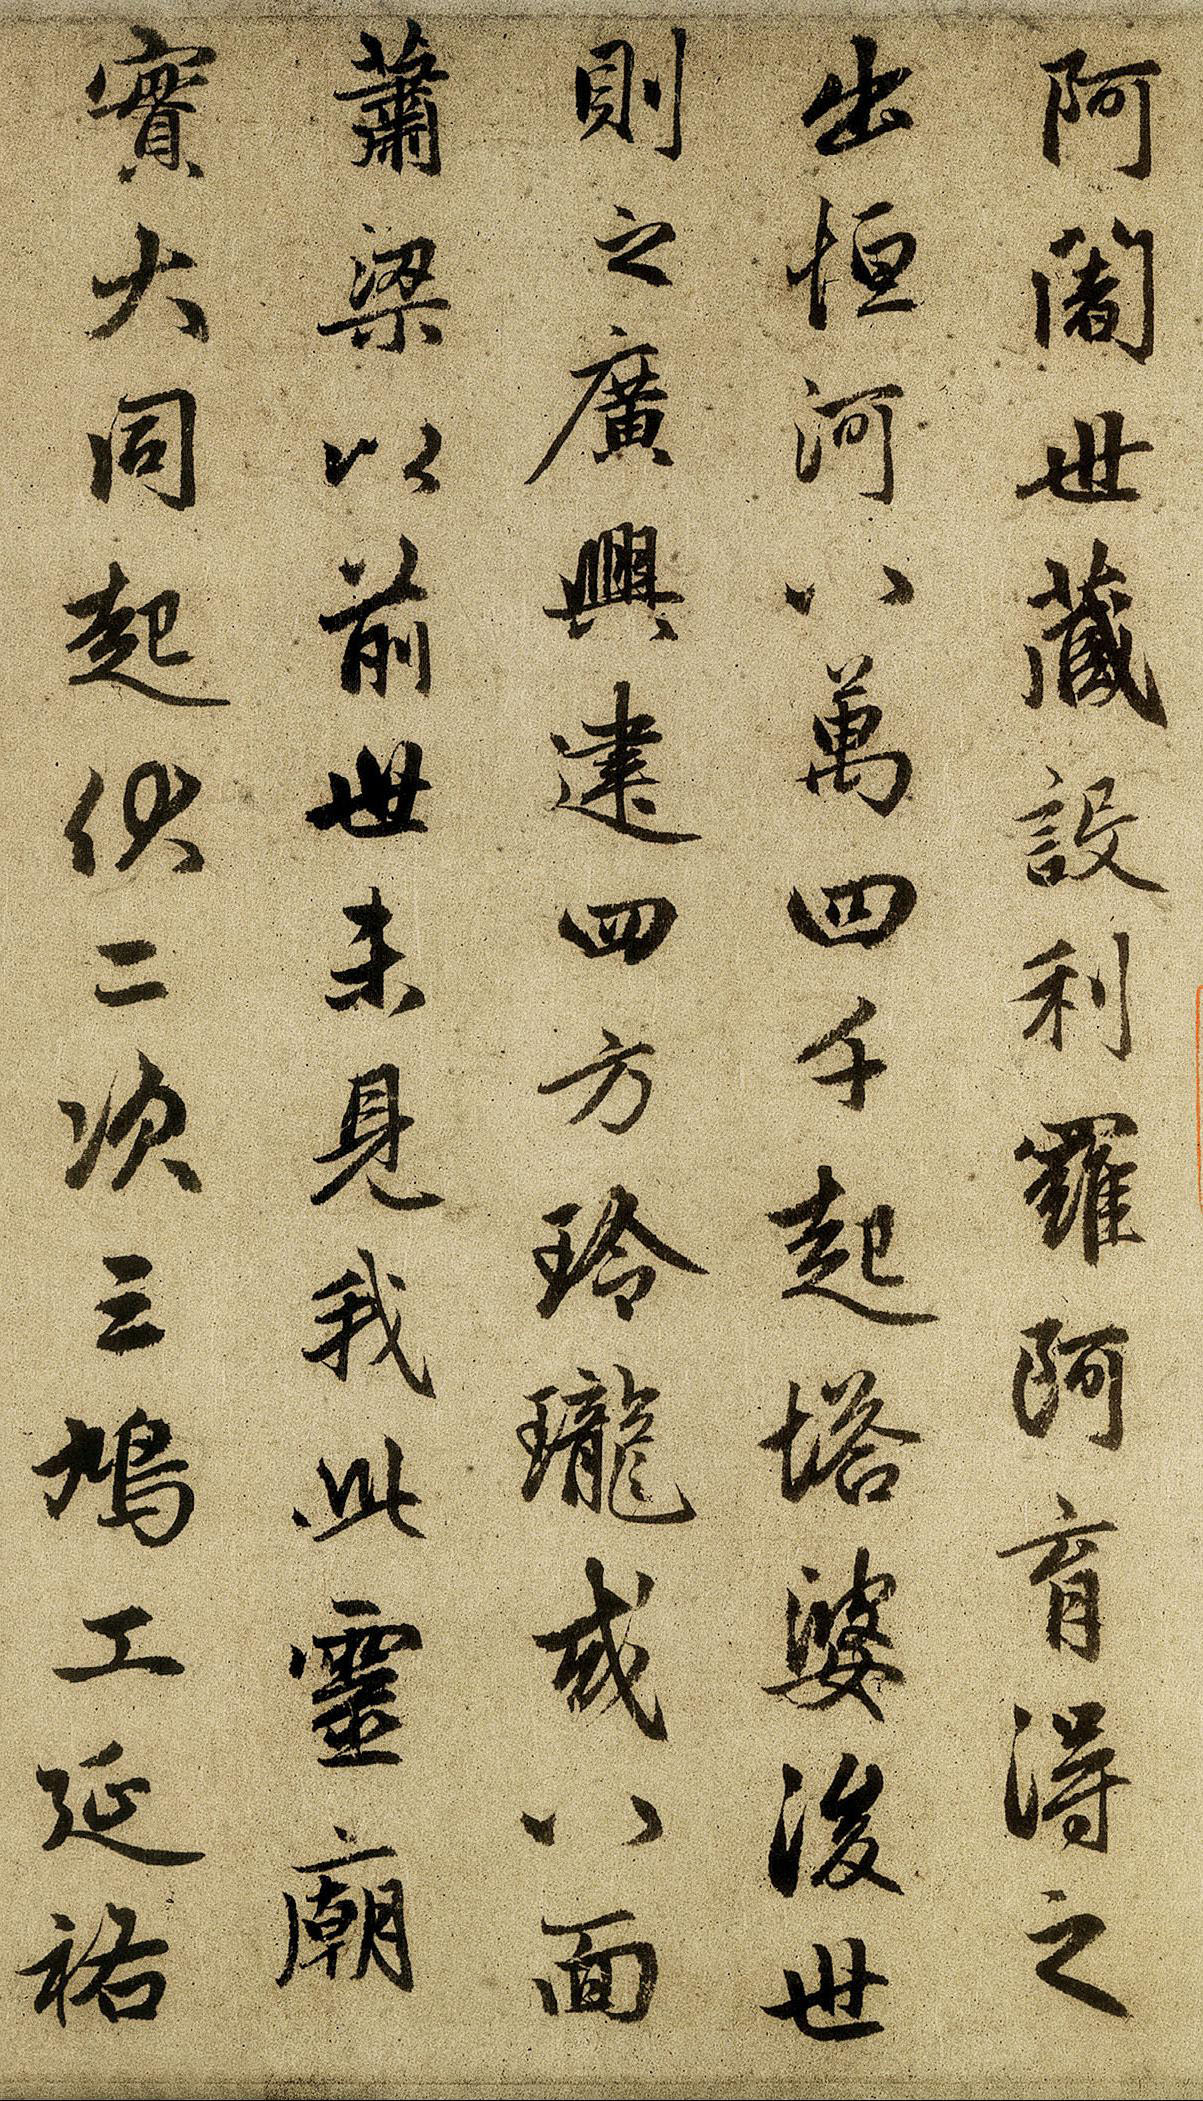 阿闍世藏設利羅阿育得之
出恒河八萬四千起塔婆後世
則之廣興建四方玲瓏或八面
蕭梁以前世未見我此靈廟
實大同起伏二次三鳩工延祐